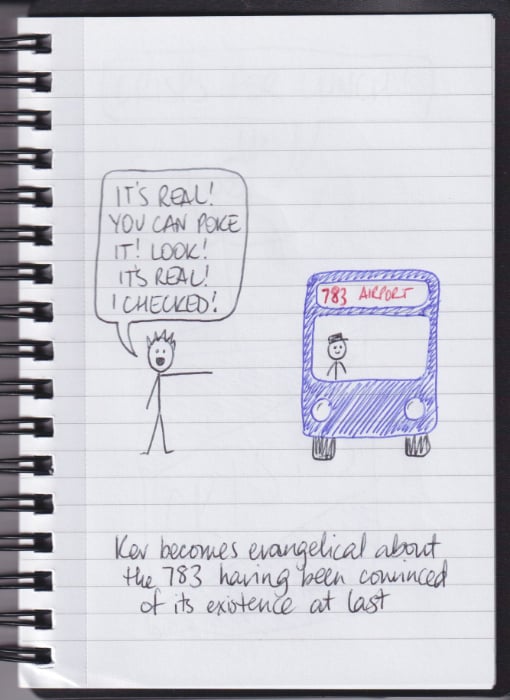 IT'S REAL!
YOU CAN POKE
IT! LOOK!
IT'S REAL!
I CHECKED!
783 AIRPORT
Kev becomes evangelical about
the 783 having been convinced
of its existence at last